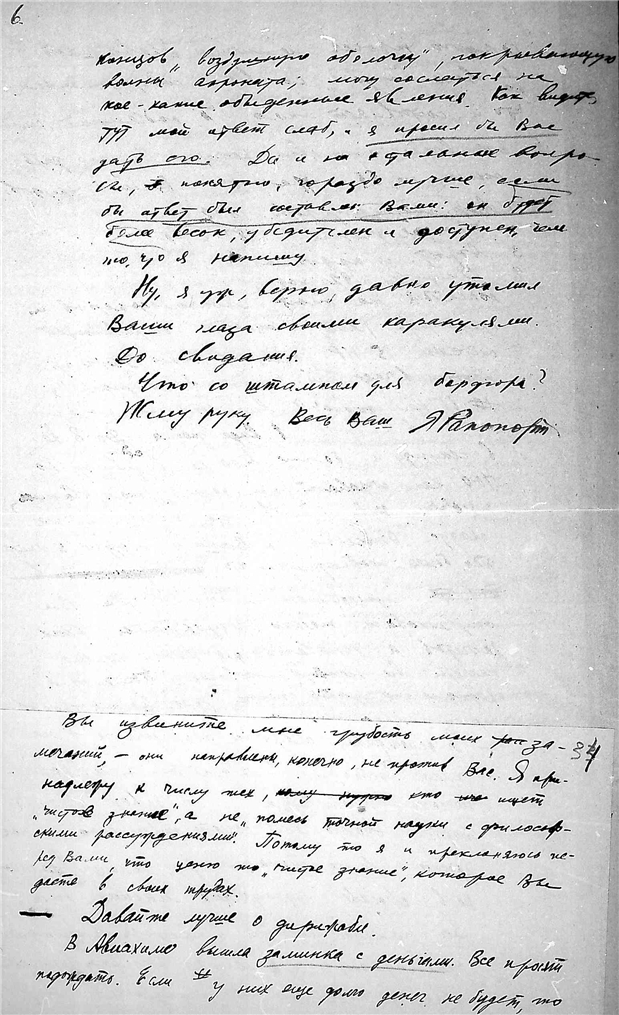 6.
концов „воздушную оболочку", покрывающую
волны аэроната; могу сослаться на
кое-какие обыденные явления. Как видите,
тут мой ответ слаб, и я просил бы Вас
дать его. Да и на остальные вопро-
сы, понятно, гораздо лучше, если
бы ответ был составлен Вами: он будет
более весок, убедителен и доступен, чем
то, что я напишу.
Ну, я уж, верно, давно утомил
Ваши глаза своими каракулями.
До свидания.
Что со штампом для бордюра?
Жму руку. Весь Ваш Я Рапопорт
Вы извините мне грубость моих за-
мечаний, – они направлены, конечно, не против Вас. Я при-
37
надлежу к числу тех, кому нужно кто ищет
„чистое знание", а не „помесь точной науки с философ-
скими рассуждениями". Потому то я и преклоняюсь пе-
ред Вами, что ценю то „чистое знание", которое Вы
даете в своих трудах.
— Давайте лучше о дирижабле.
В Авиахиме вышла заминка с деньгами. Все просят
подождать. Если у них еще долго денег не будет, то